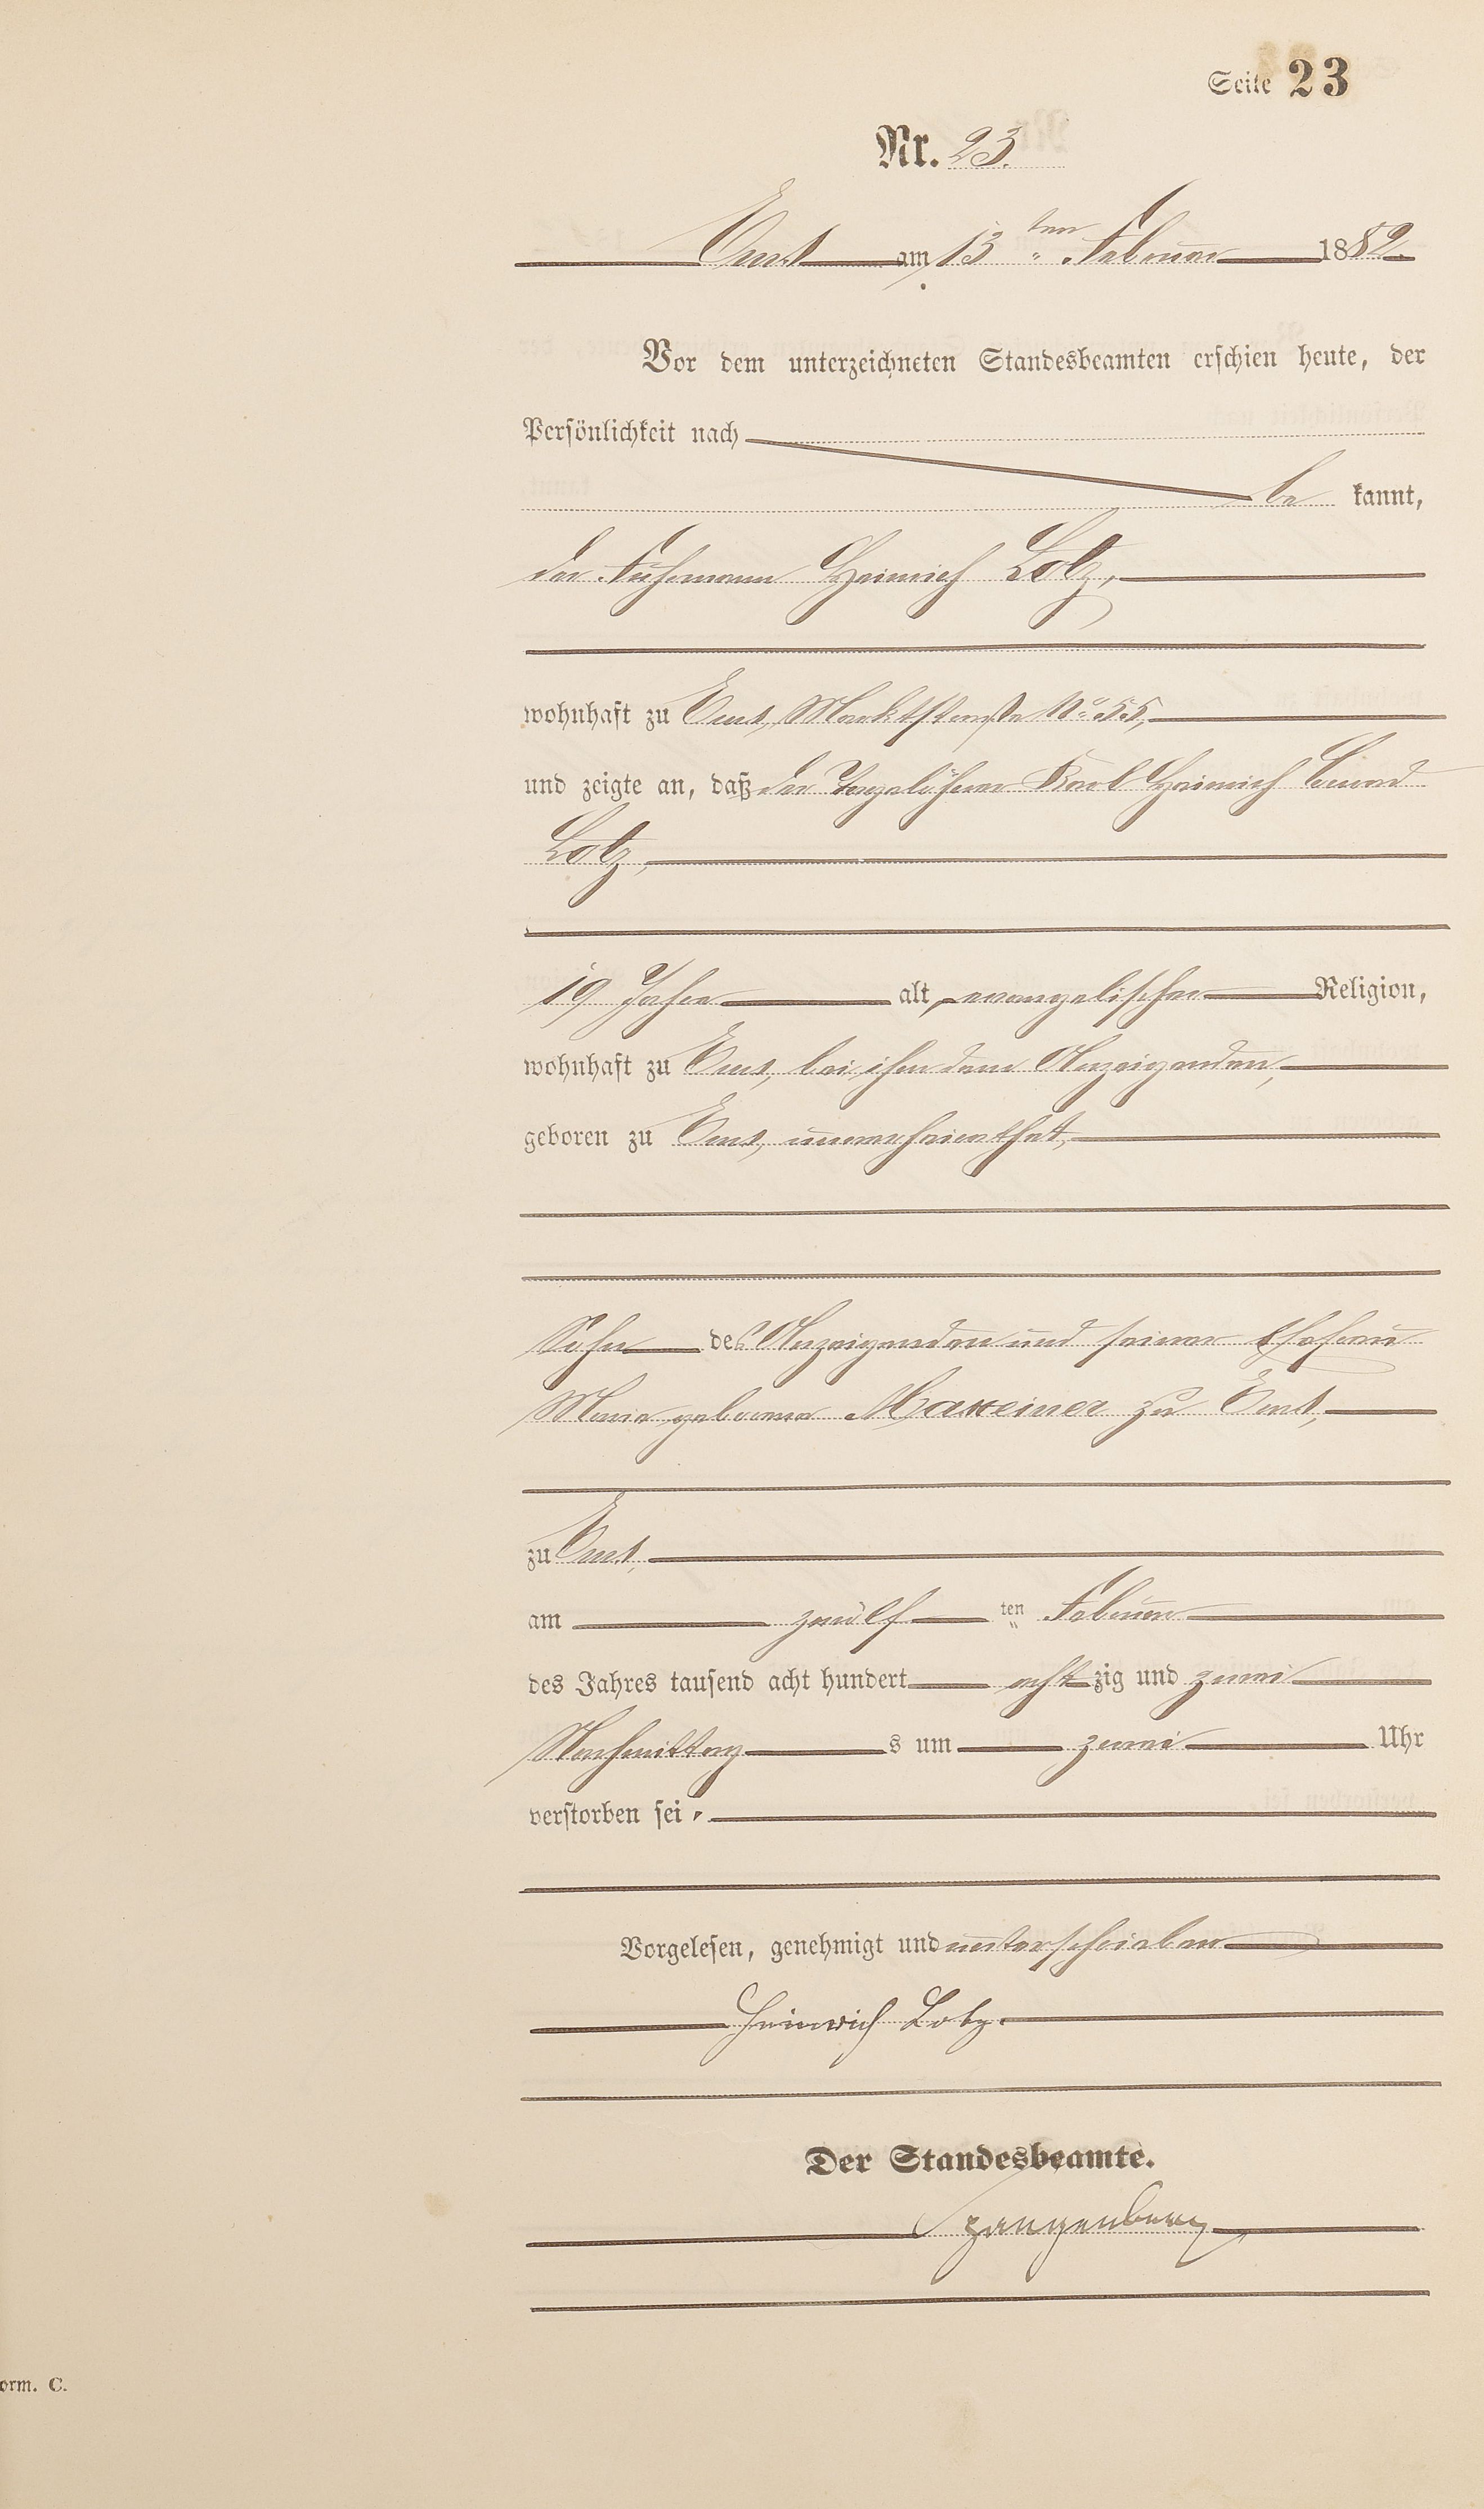 Seite 23
Nr. 23.
Ems am 13 ten Februar 1882.
Vor dem unterzeichneten Standesbeamten erschien heute, der
Persönlichkeit nach
be kannt,
der Fuhrmann Heinrich Lotz,
wohnhaft zu Ems, Marktstraße No 55,
und zeigte an, daß der Tagelöhner Karl Heinrich
Lotz,
19 Jahre alt, evangelischer Religion,
wohnhaft zu Ems, bei ihm dem Anzeigenden,
geboren zu Ems, unverheirathet,
Sohn des Anzeigenden und seiner Ehefrau
Marie geborene zu Ems,
zu Ems,
am zwölf ten Februar
des Jahres tausend acht hundert acht zig und zwei
Nachmittag s um zwei Uhr
verstorben sei.
Vorgelesen, genehmigt und unterschrieben
Heinrich Lotz.
Der Standesbeamte.
Spangenberg
orm. C.